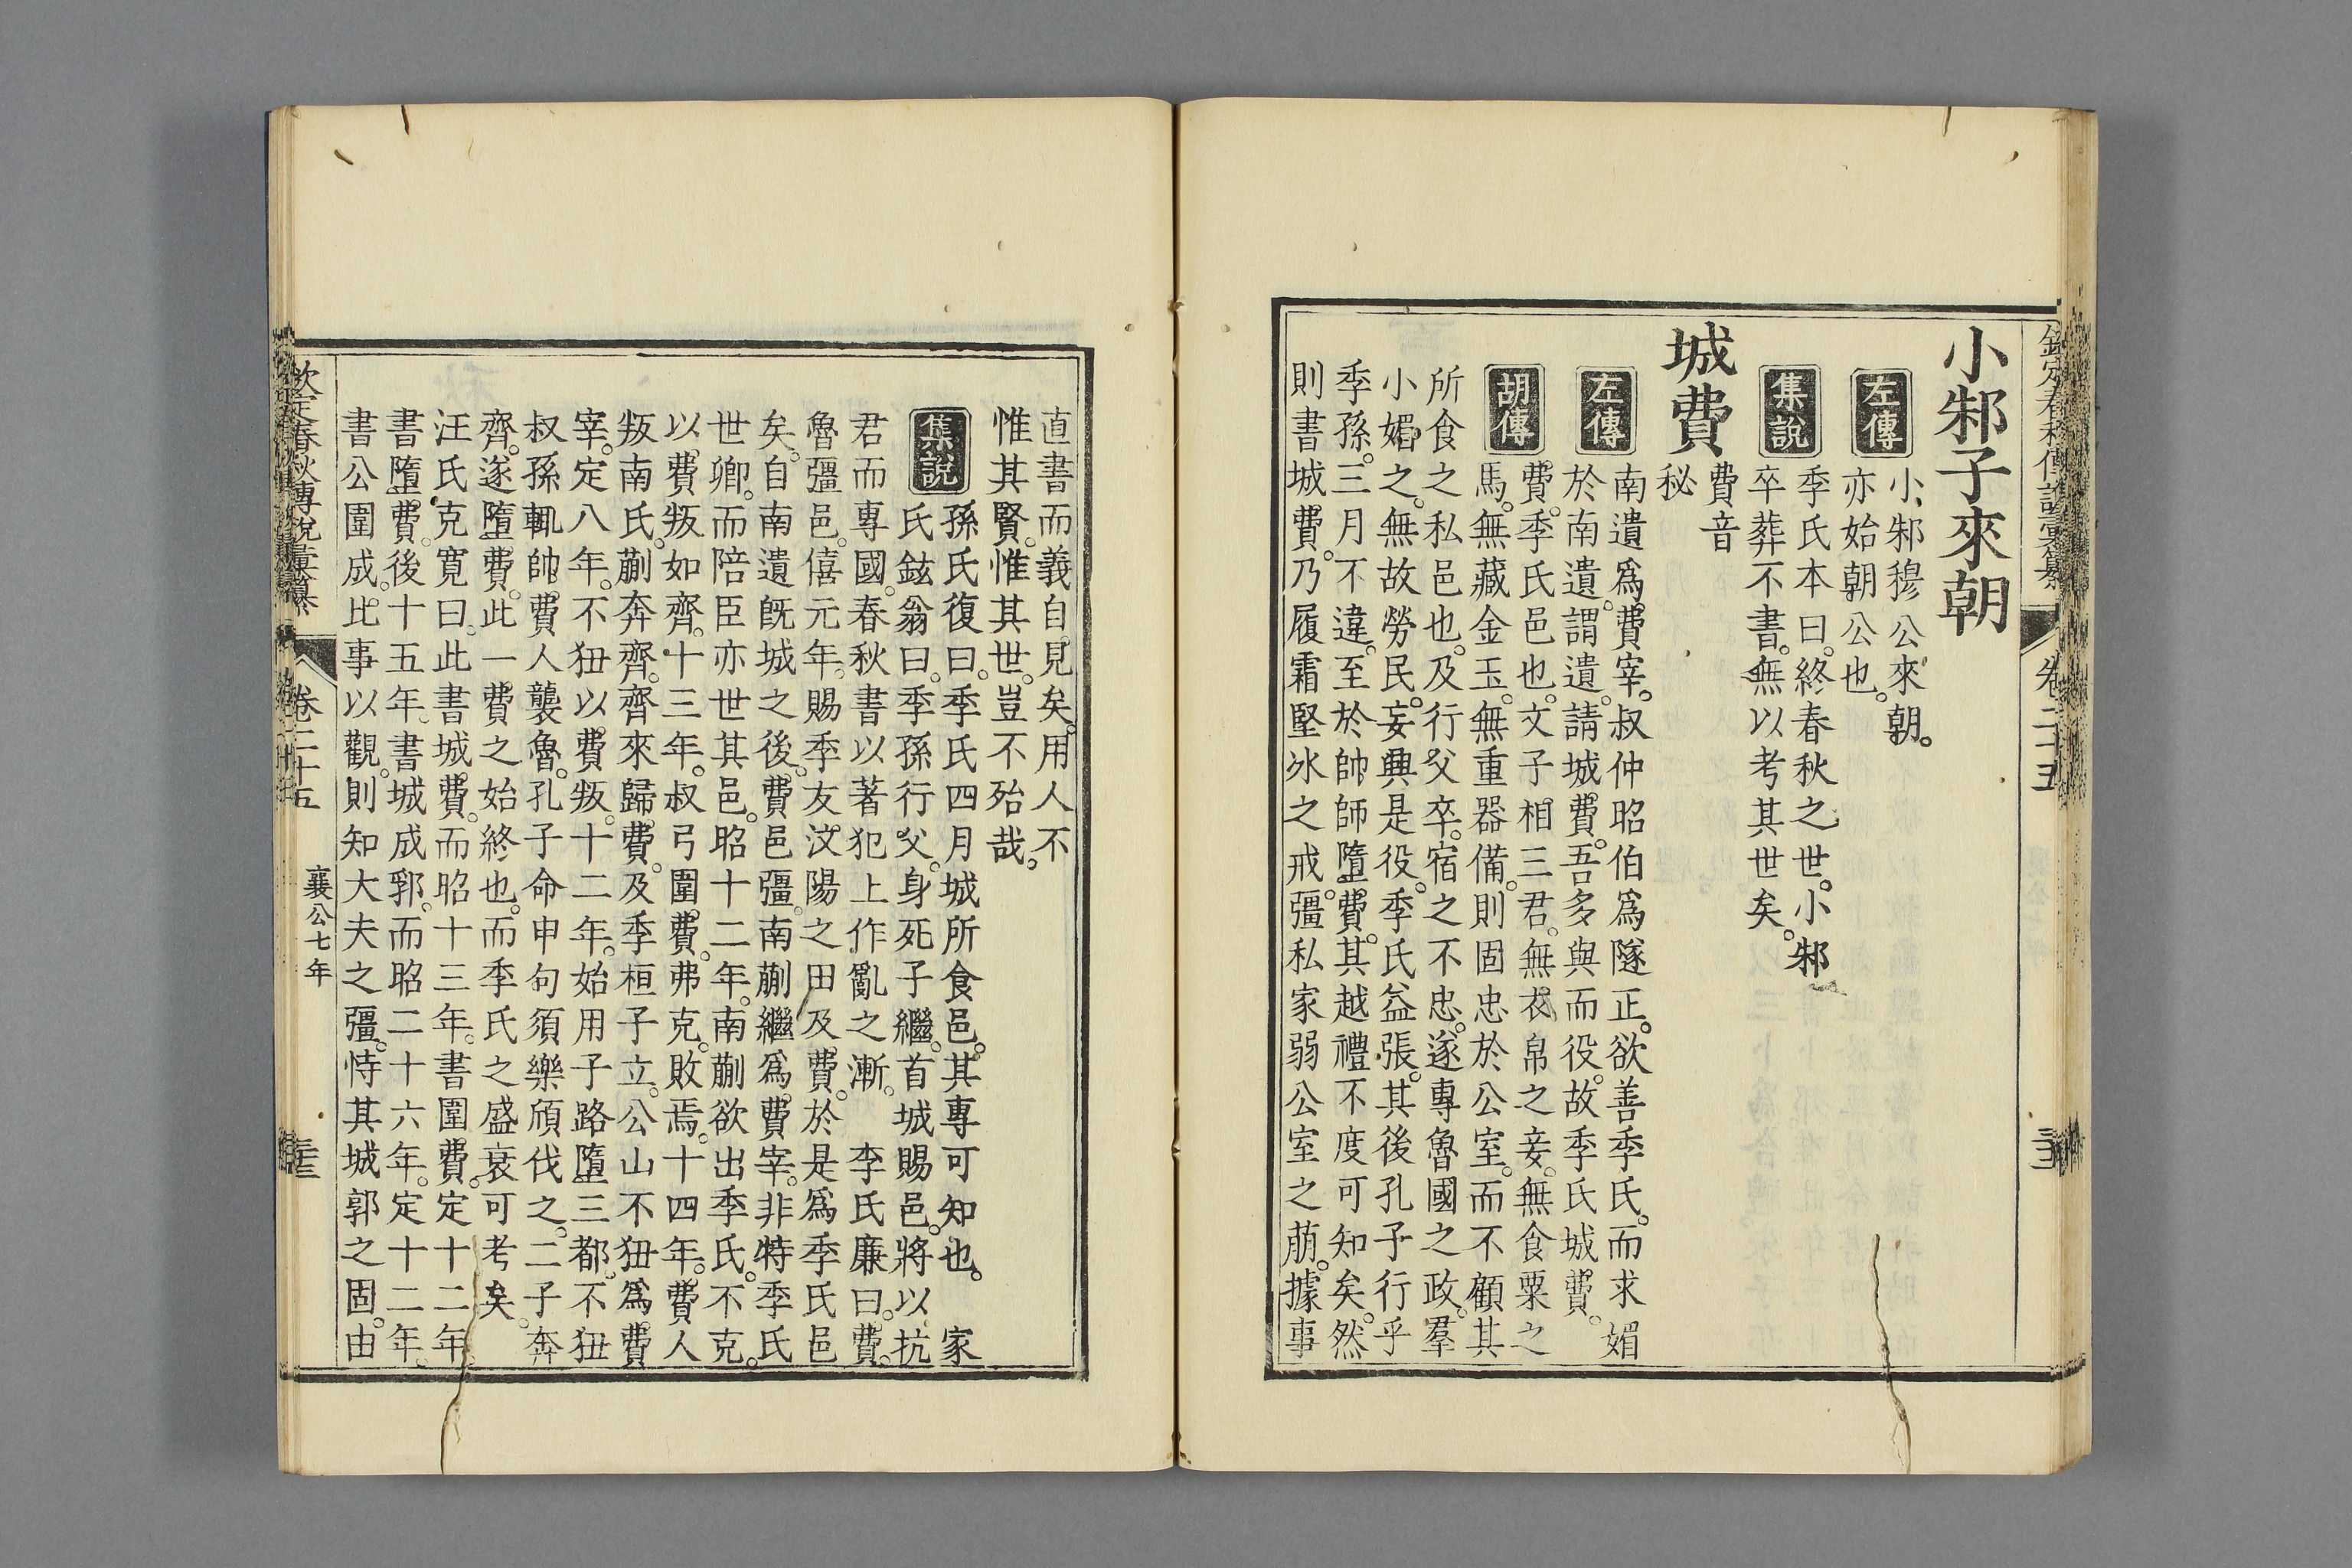 小邾子來朝
左傳
小邾穆公來朝。
亦始朝公也。
集說
季氏本曰。終春秋之世。小邾
卒葬不書。無以考其世矣。
城費
費音
秘
左傳
南遺爲費宰。叔仲昭伯爲隧正。欲善季氏。而求媚
於南遺。謂遺。請城費。吾多與而役。故季氏城費。
胡傳
費。季氏邑也。文子相三君。無衣帛之妾。無食粟之
馬。無藏金玉。無重器備。則固忠於公室。而不顧其
所食之私邑也。及行父卒。宿之不忠。遂專魯國之政。羣
小媚之。無故勞民。妄興是役。季氏益張。其後孔子行乎
季孫。三月不違。至於帥師墮費。其越禮不度可知矣。然
則書城費。乃履霜堅冰之戒。彊私家弱公室之萌。據事
直書而義自見矣。用人不
惟其賢。惟其世。豈不殆哉。
集說
孫氏復曰。季氏四月城所食邑。其專可知也。 家
氏鉉翁曰。季孫行父。身死子繼。首城賜邑。將以抗
君而專國。春秋書以著犯上作亂之漸。 李氏廉曰。費。
魯彊邑。僖元年。賜季友汶陽之田及費。於是爲季氏邑
矣。自南遺旣城之後。費邑彊。南蒯繼爲費宰。非特季氏
世卿。而陪臣亦世其邑。昭十二年。南蒯欲出季氏。不克。
以費叛如齊。十三年。叔弓圍費。弗克。敗焉。十四年。費人
叛南氏。蒯奔齊。齊來歸費。及季桓子立。公山不狃爲費
宰。定八年。不狃以費叛。十二年。始用子路墮三都。不狃
叔孫輒帥費人襲魯。孔子命申句須樂頎伐之。二子奔
齊。遂墮費。此一費之始終也。而季氏之盛衰可考矣。
汪氏克寬曰。此書城費。而昭十三年。書圍費。定十二年。
書墮費。後十五年。書城成郛。而昭二十六年。定十二年。
書公圍成。比事以觀。則知大夫之彊。恃其城郭之固。由
欽定春秋傳說彙纂
卷二十五
襄公七年